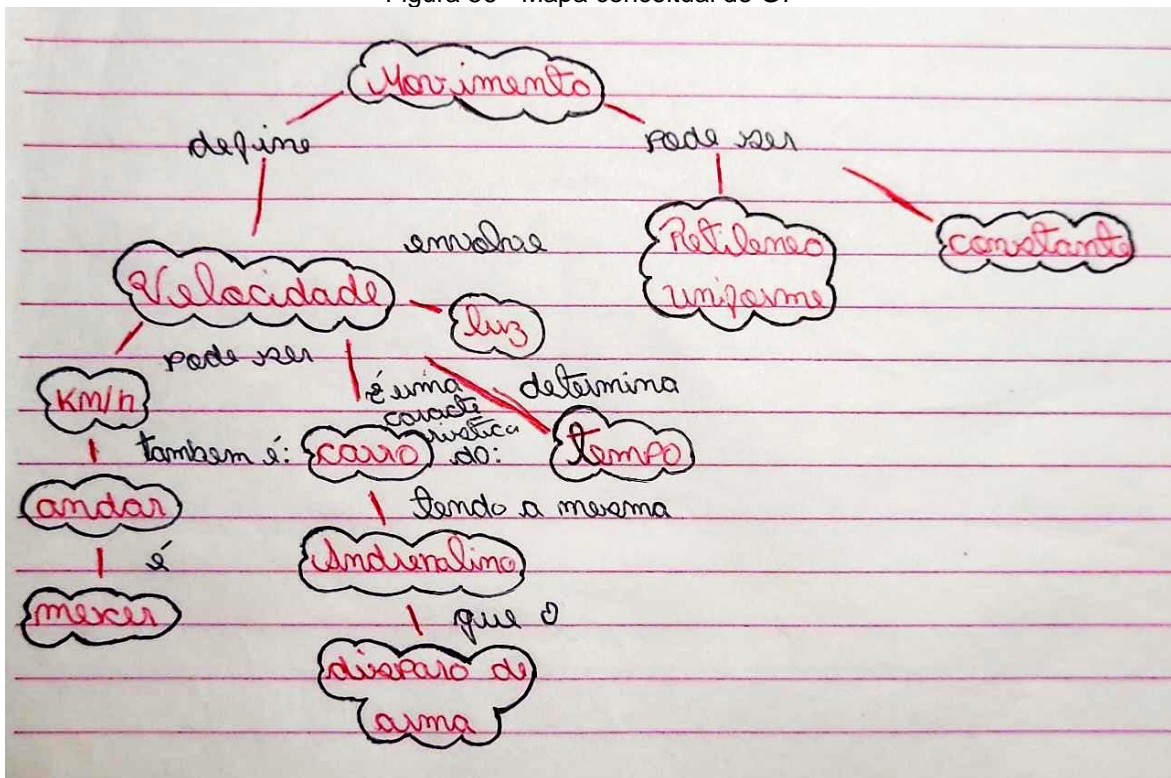 Movimento
define
pode ser
envolve
Retileneo
uniforme
constante
Velocidade
luz
pode ser
é uma
caracte
rística
do:
determina
Km/h
tambem é:
carro
tempo
andar
tendo a mesma
Andrenalina
é
mexer
que o
disparo de
arma